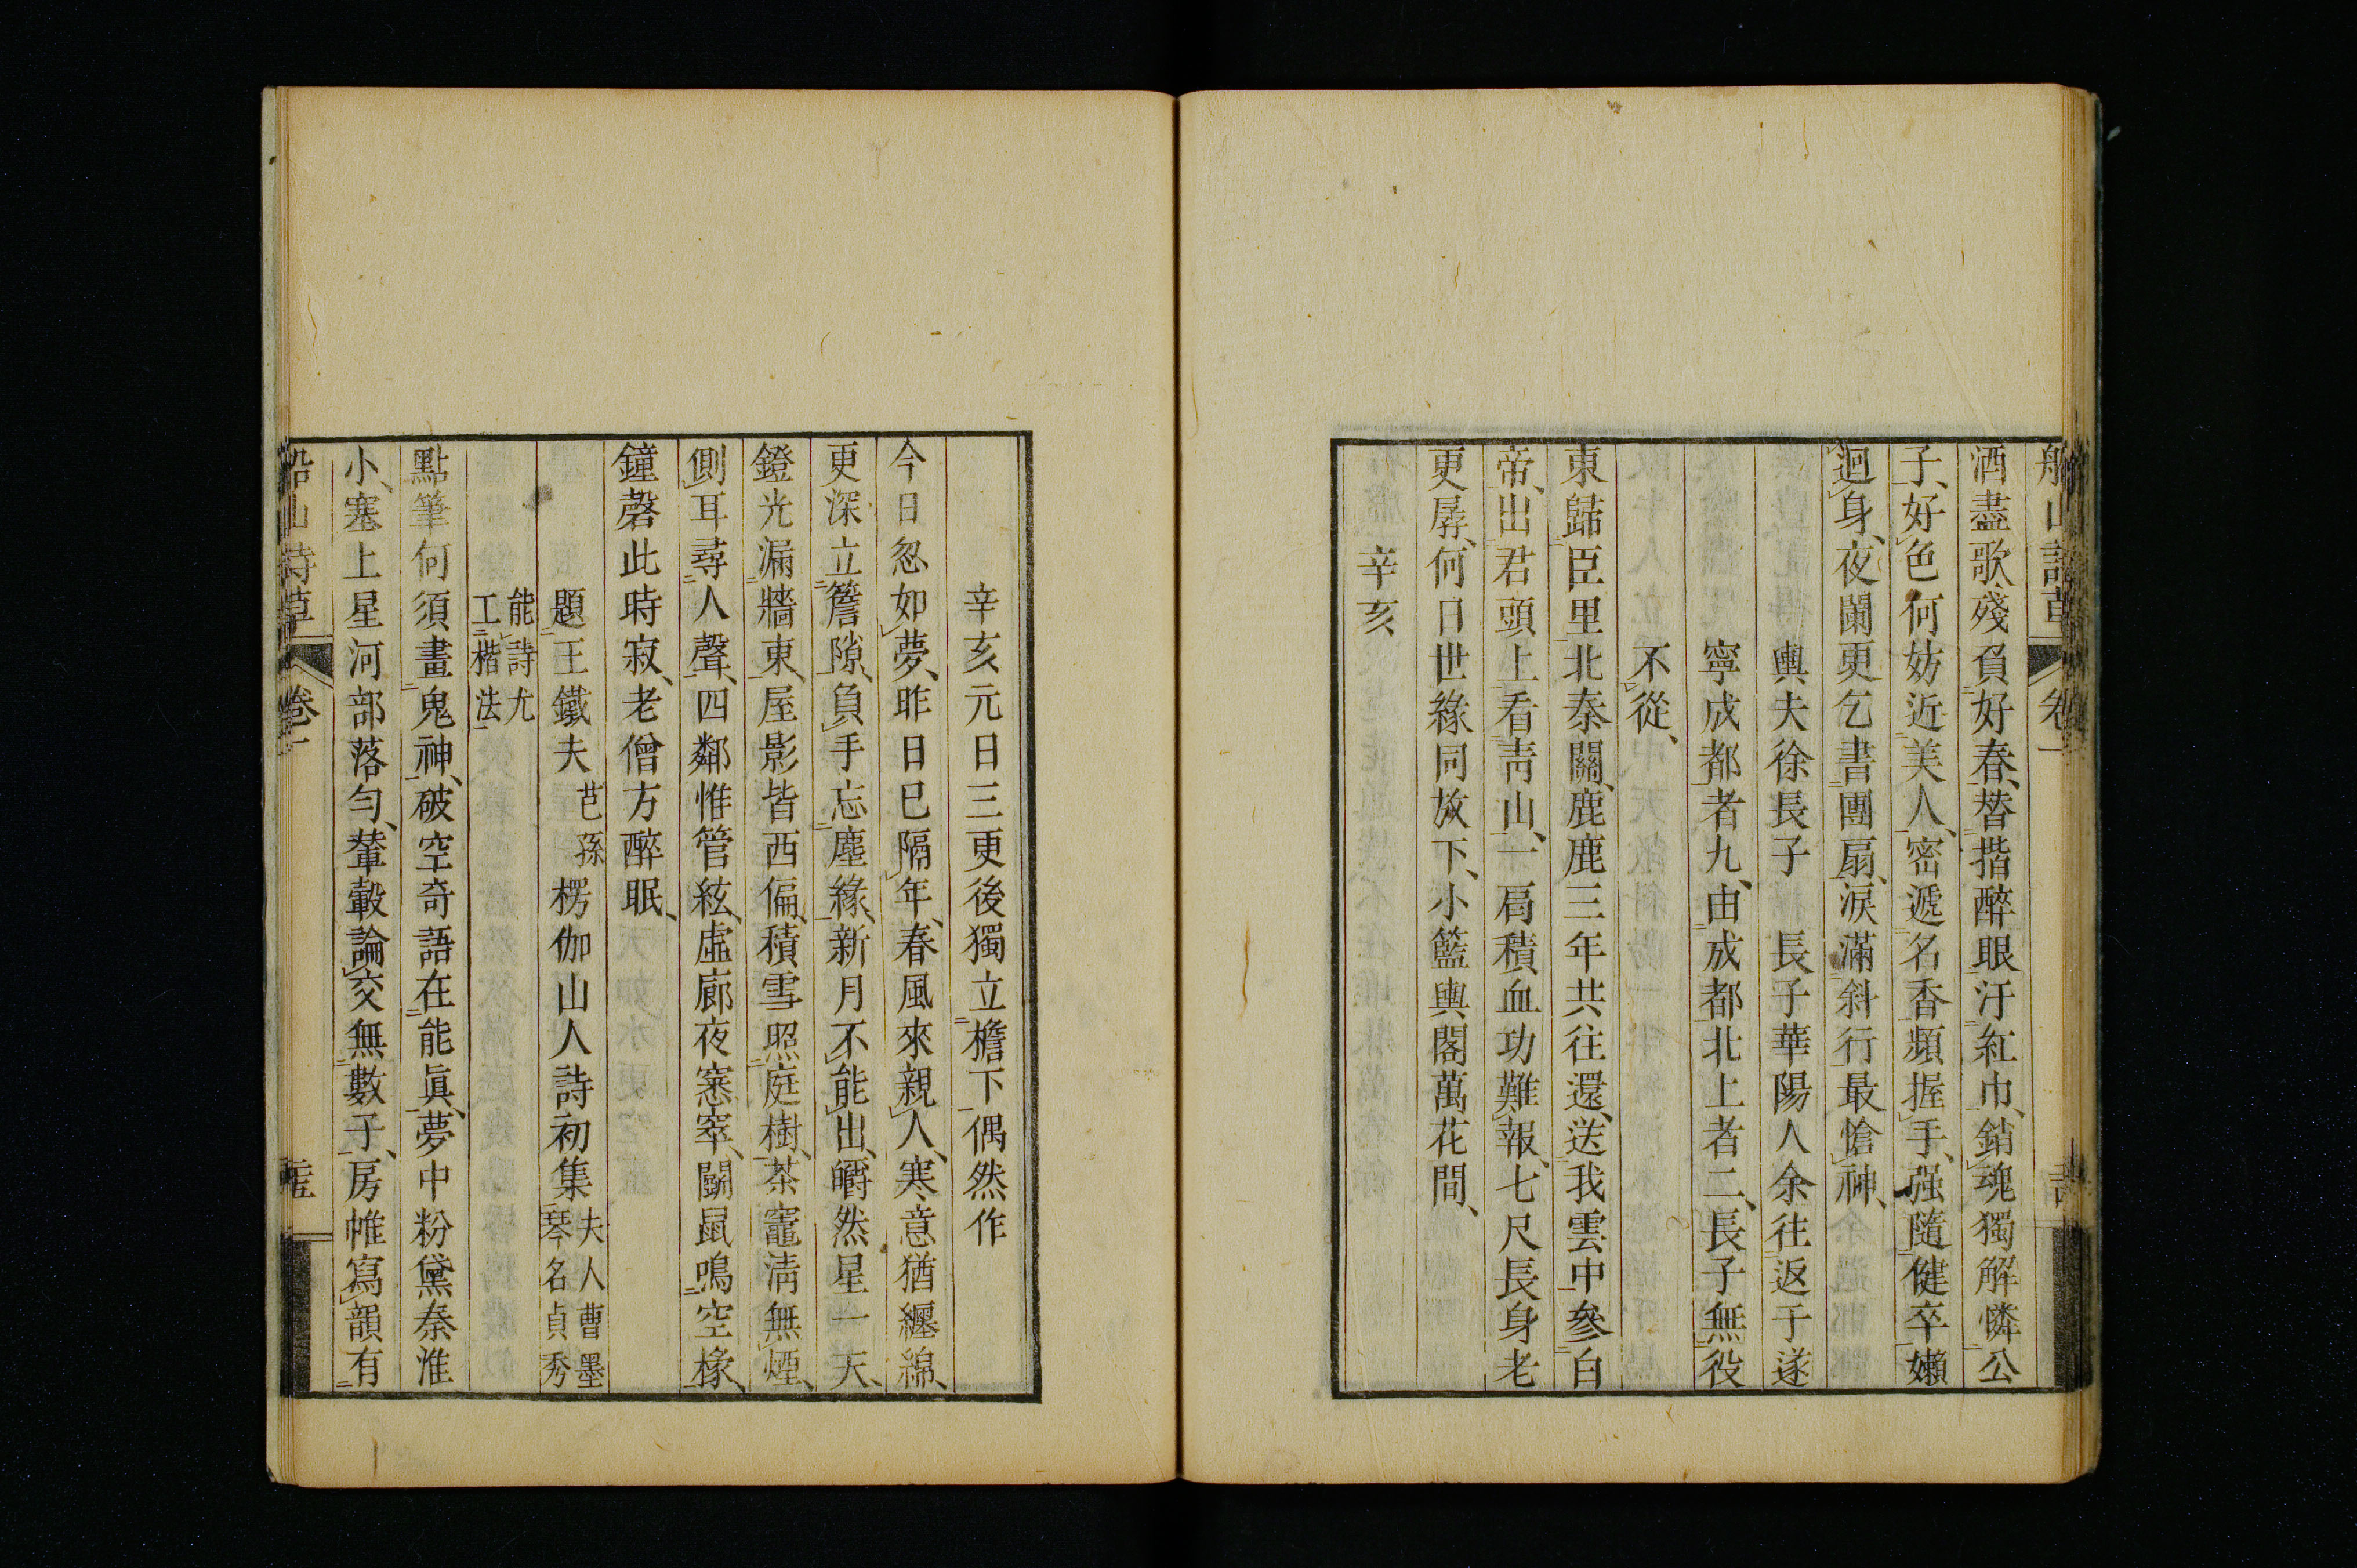 船山詩草 卷一
酒盡歌殘負好春替揩醉眼汙紅巾銷魂獨解憐公
子好色何妨近美人密遞名香頻握手强隨健卒嬾
迴身夜闌更乞書團扇淚滿斜行最愴神
輿夫徐長子 長子華陽人余往返于遂
寧成都者九由成都北上者二長子無役
不從
東歸臣里北秦關鹿鹿三年共往還送我雲中參白
帝出君頭上看靑山一肩積血功難報七尺長身老
更孱何日世緣同放下小籃輿閣萬花間
辛亥
辛亥元日三更後獨立檐下偶然作
今日忽如夢昨日已隔年春風來親人寒意猶纏綿
更深立簷隙負手忘塵緣新月不能出皭然星一天
鐙光漏牆東屋影皆西偏積雪照庭樹茶竈淸無煙
側耳尋人聲四鄰惟管絃虛廊夜窸窣鬭鼠鳴空椽
鐘磬此時寂老僧方醉眠
題王鐵夫芑孫楞伽山人詩初集夫人曹墨琴名貞秀
能詩尤工楷法
點筆何須畫鬼神破空奇語在能眞夢中粉黛秦淮
小塞上星河部落勻輦轂論交無數子房帷寫韻有
船山詩草 卷一